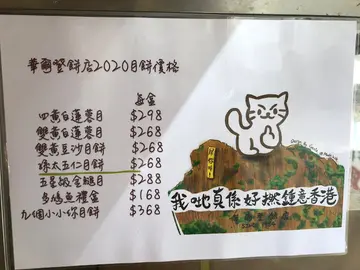 華爾登餅店2020月餅價格
每盒
四黃白蓮蓉月 $298
雙黃白蓮蓉月 $268
雙黃豆沙月餅 $268
孫太五仁月餅 $268
五星級金腿月 $288
多嗎魚禮盒 $168
九個小小你月餅 $368
我哋真係好撚鍾意香港